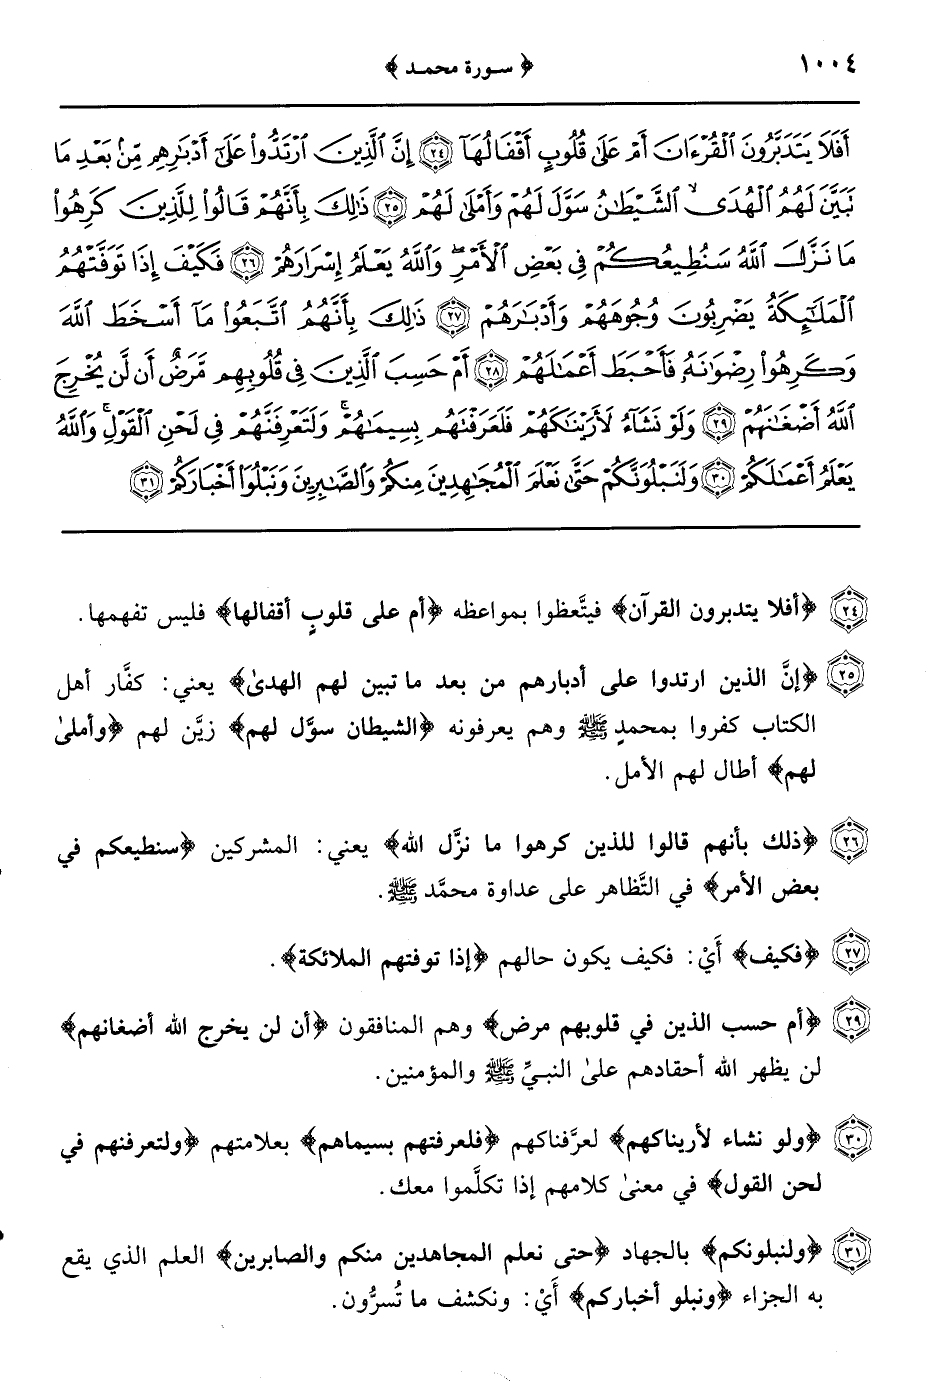 ١٠٠٤ ﴿ سورة محمد ﴾
أَفَلَا يَتَدَبَّرُونَ ٱلْقُرْءَانَ أَمْ عَلَىٰ قُلُوبٍ أَقْفَالُهَآ ٢٤ إِنَّ ٱلَّذِينَ ٱرْتَدُّوا۟ عَلَىٰٓ أَدْبَٰرِهِم مِّنۢ بَعْدِ مَا
تَبَيَّنَ لَهُمُ ٱلْهُدَى ۙ ٱلشَّيْطَٰنُ سَوَّلَ لَهُمْ وَأَمْلَىٰ لَهُمْ ٢٥ ذَٰلِكَ بِأَنَّهُمْ قَالُوا۟ لِلَّذِينَ كَرِهُوا۟
مَا نَزَّلَ ٱللَّهُ سَنُطِيعُكُمْ فِى بَعْضِ ٱلْأَمْرِ ۖ وَٱللَّهُ يَعْلَمُ إِسْرَارَهُمْ ٢٦ فَكَيْفَ إِذَا تَوَفَّتْهُمُ
ٱلْمَلَٰٓئِكَةُ يَضْرِبُونَ وُجُوهَهُمْ وَأَدْبَٰرَهُمْ ٢٧ ذَٰلِكَ بِأَنَّهُمُ ٱتَّبَعُوا۟ مَآ أَسْخَطَ ٱللَّهَ
وَكَرِهُوا۟ رِضْوَٰنَهُۥ فَأَحْبَطَ أَعْمَٰلَهُمْ ٢٨ أَمْ حَسِبَ ٱلَّذِينَ فِى قُلُوبِهِم مَّرَضٌ أَن لَّن يُخْرِجَ
ٱللَّهُ أَضْغَٰنَهُمْ ٢٩ وَلَوْ نَشَآءُ لَأَرَيْنَٰكَهُمْ فَلَعَرَفْتَهُم بِسِيمَٰهُمْ ۚ وَلَتَعْرِفَنَّهُمْ فِى لَحْنِ ٱلْقَوْلِ ۚ وَٱللَّهُ
يَعْلَمُ أَعْمَٰلَكُمْ ٣٠ وَلَنَبْلُوَنَّكُمْ حَتَّىٰ نَعْلَمَ ٱلْمُجَٰهِدِينَ مِنكُمْ وَٱلصَّٰبِرِينَ وَنَبْلُوَا۟ أَخْبَارَكُمْ ٣١
٢٤ ﴿أفلا يتدبرون القرآن﴾ فيتَّعظوا بمواعظه ﴿أم على قلوبٍ أقفالها﴾ فليس تفهمها.
٢٥ ﴿إنَّ الذين ارتدوا على أدبارهم من بعد ما تبين لهم الهدىٰ﴾ يعني: كفَّار أهل
الكتاب كفروا بمحمدٍ ﷺ وهم يعرفونه ﴿الشيطان سوَّل لهم﴾ زيَّن لهم ﴿وأملىٰ
لهم﴾ أطال لهم الأمل.
٢٦ ﴿ذلك بأنهم قالوا للذين كرهوا ما نزَّل الله﴾ يعني: المشركين ﴿سنطيعكم في
بعض الأمر﴾ في التَّظاهر على عداوة محمَّد ﷺ.
٢٧ ﴿فكيف﴾ أَيْ: فكيف يكون حالهم ﴿إذا توفتهم الملائكة﴾.
٢٩ ﴿أم حسب الذين في قلوبهم مرض﴾ وهم المنافقون ﴿أن لن يخرج الله أضغانهم﴾
لن يظهر الله أحقادهم علىٰ النبيِّ ﷺ والمؤمنين.
٣٠ ﴿ولو نشاء لأريناكهم﴾ لعرَّفناكهم ﴿فلعرفتهم بسيماهم﴾ بعلامتهم ﴿ولتعرفنهم في
لحن القول﴾ في معنىٰ كلامهم إذا تكلَّموا معك.
٣١ ﴿ولنبلونكم﴾ بالجهاد ﴿حتى نعلم المجاهدين منكم والصابرين﴾ العلم الذي يقع
به الجزاء ﴿ونبلو أخباركم﴾ أَيْ: ونكشف ما تُسرُّون.